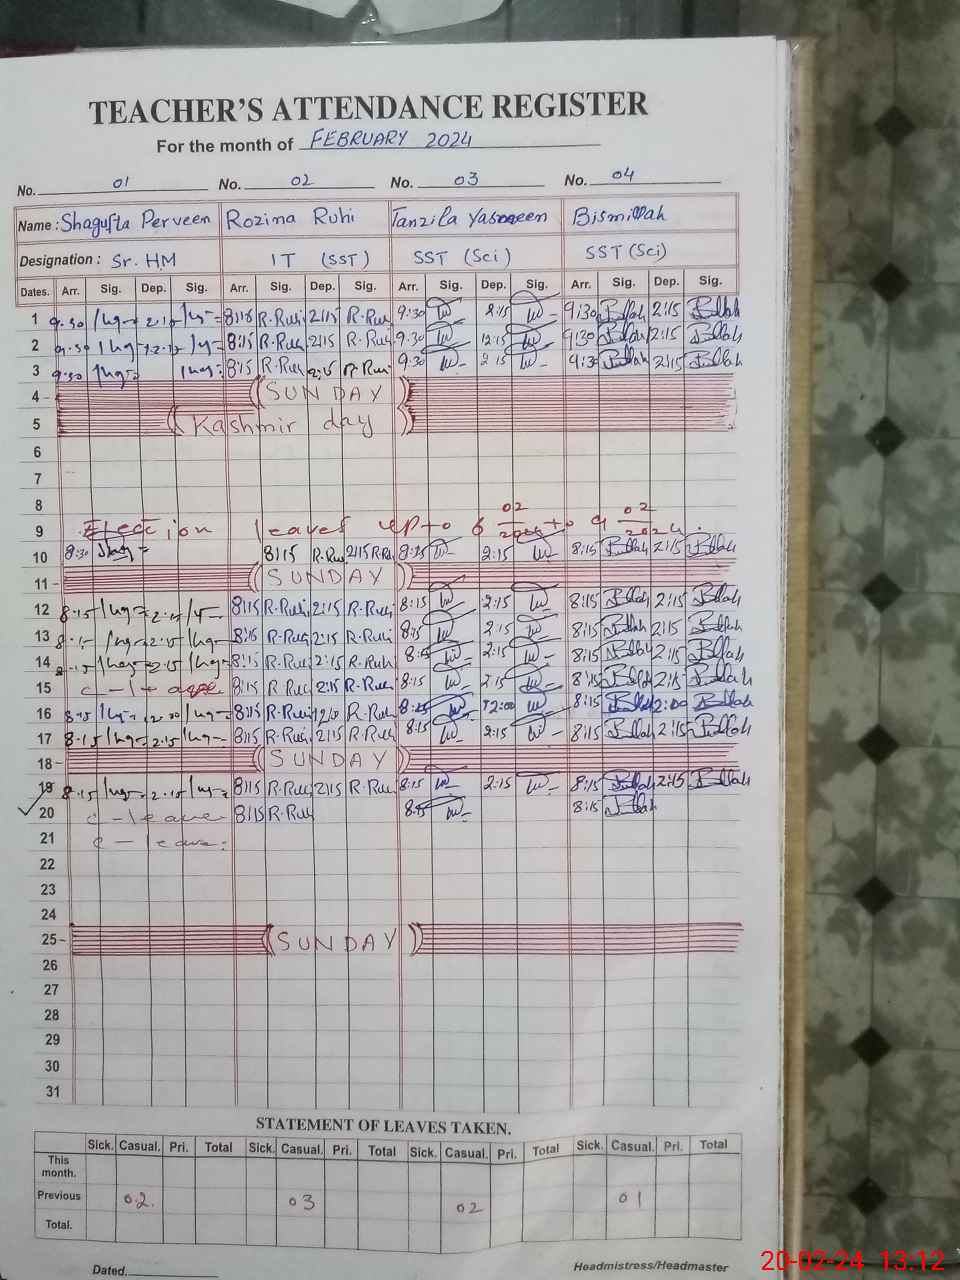 TEACHER'S ATTENDANCE REGISTER
For the month of FEBRUARY 2024
No. 01 No. 02 No. 03 No. 04
Name : Shagufta Perveen Rozina Ruhi Tanzila Yasmeen Bismillah
Designation : Sr. HM IT (SST) SST (Sci) SST (Sci)
Dates. Arr. Sig. Dep. Sig. Arr. Sig. Dep. Sig. Arr. Sig. Dep. Sig. Arr. Sig. Dep. Sig.
1 9:30 2:15 8:15 R-Ruhi 2:15 R-Ruhi 9:30 2:15 9:30 Bllah 2:15 Bllah
2 9:30 12:15 8:15 R-Ruhi 2:15 R-Ruhi 9:30 12:15 9:30 Bllah 2:15 Bllah
3 9:30 8:15 R-Ruhi 2:15 R-Ruhi 9:30 2:15 9:30 Bllah 2:15 Bllah
4 SUNDAY
5 Kashmir day
6
7
8
9 Election leaves up to 6 02 2024 to 9 02 2024.
10 8:30 8:15 R-Ruhi 2:15 R-Ruhi 8:15 2:15 8:15 Bllah 2:15 Bllah
11 SUNDAY
12 8:15 2:15 8:15 R-Ruhi 2:15 R-Ruhi 8:15 2:15 8:15 Bllah 2:15 Bllah
13 8:15 2:15 8:15 R-Ruhi 2:15 R-Ruhi 8:15 2:15 8:15 Bllah 2:15 Bllah
14 8:15 2:15 8:15 R-Ruhi 2:15 R-Ruhi 8:15 2:15 8:15 Bllah 2:15 Bllah
15 8:15 R-Ruhi 2:15 R-Ruhi 8:15 2:15 8:15 Bllah 2:15 Bllah
16 8:15 12:00 8:15 R-Ruhi 12:00 R-Ruhi 8:15 12:00 8:15 Bllah 2:00 Bllah
17 8:15 2:15 8:15 R-Ruhi 2:15 R-Ruhi 8:15 2:15 8:15 Bllah 2:15 Bllah
18 SUNDAY
19 8:15 2:15 8:15 R-Ruhi 2:15 R-Ruhi 8:15 2:15 8:15 Bllah 2:15 Bllah
20 c - leave 8:15 R-Ruhi 8:15 8:15 Bllah
21 c - leave.
22
23
24
25 SUNDAY
26
27
28
29
30
31
STATEMENT OF LEAVES TAKEN.
Sick. Casual. Pri. Total Sick. Casual. Pri. Total Sick. Casual. Pri. Total Sick. Casual. Pri. Total
This month.
Previous 02. 03 02 01
Total.
Dated. Headmistress/Headmaster
20-02-24 13:12